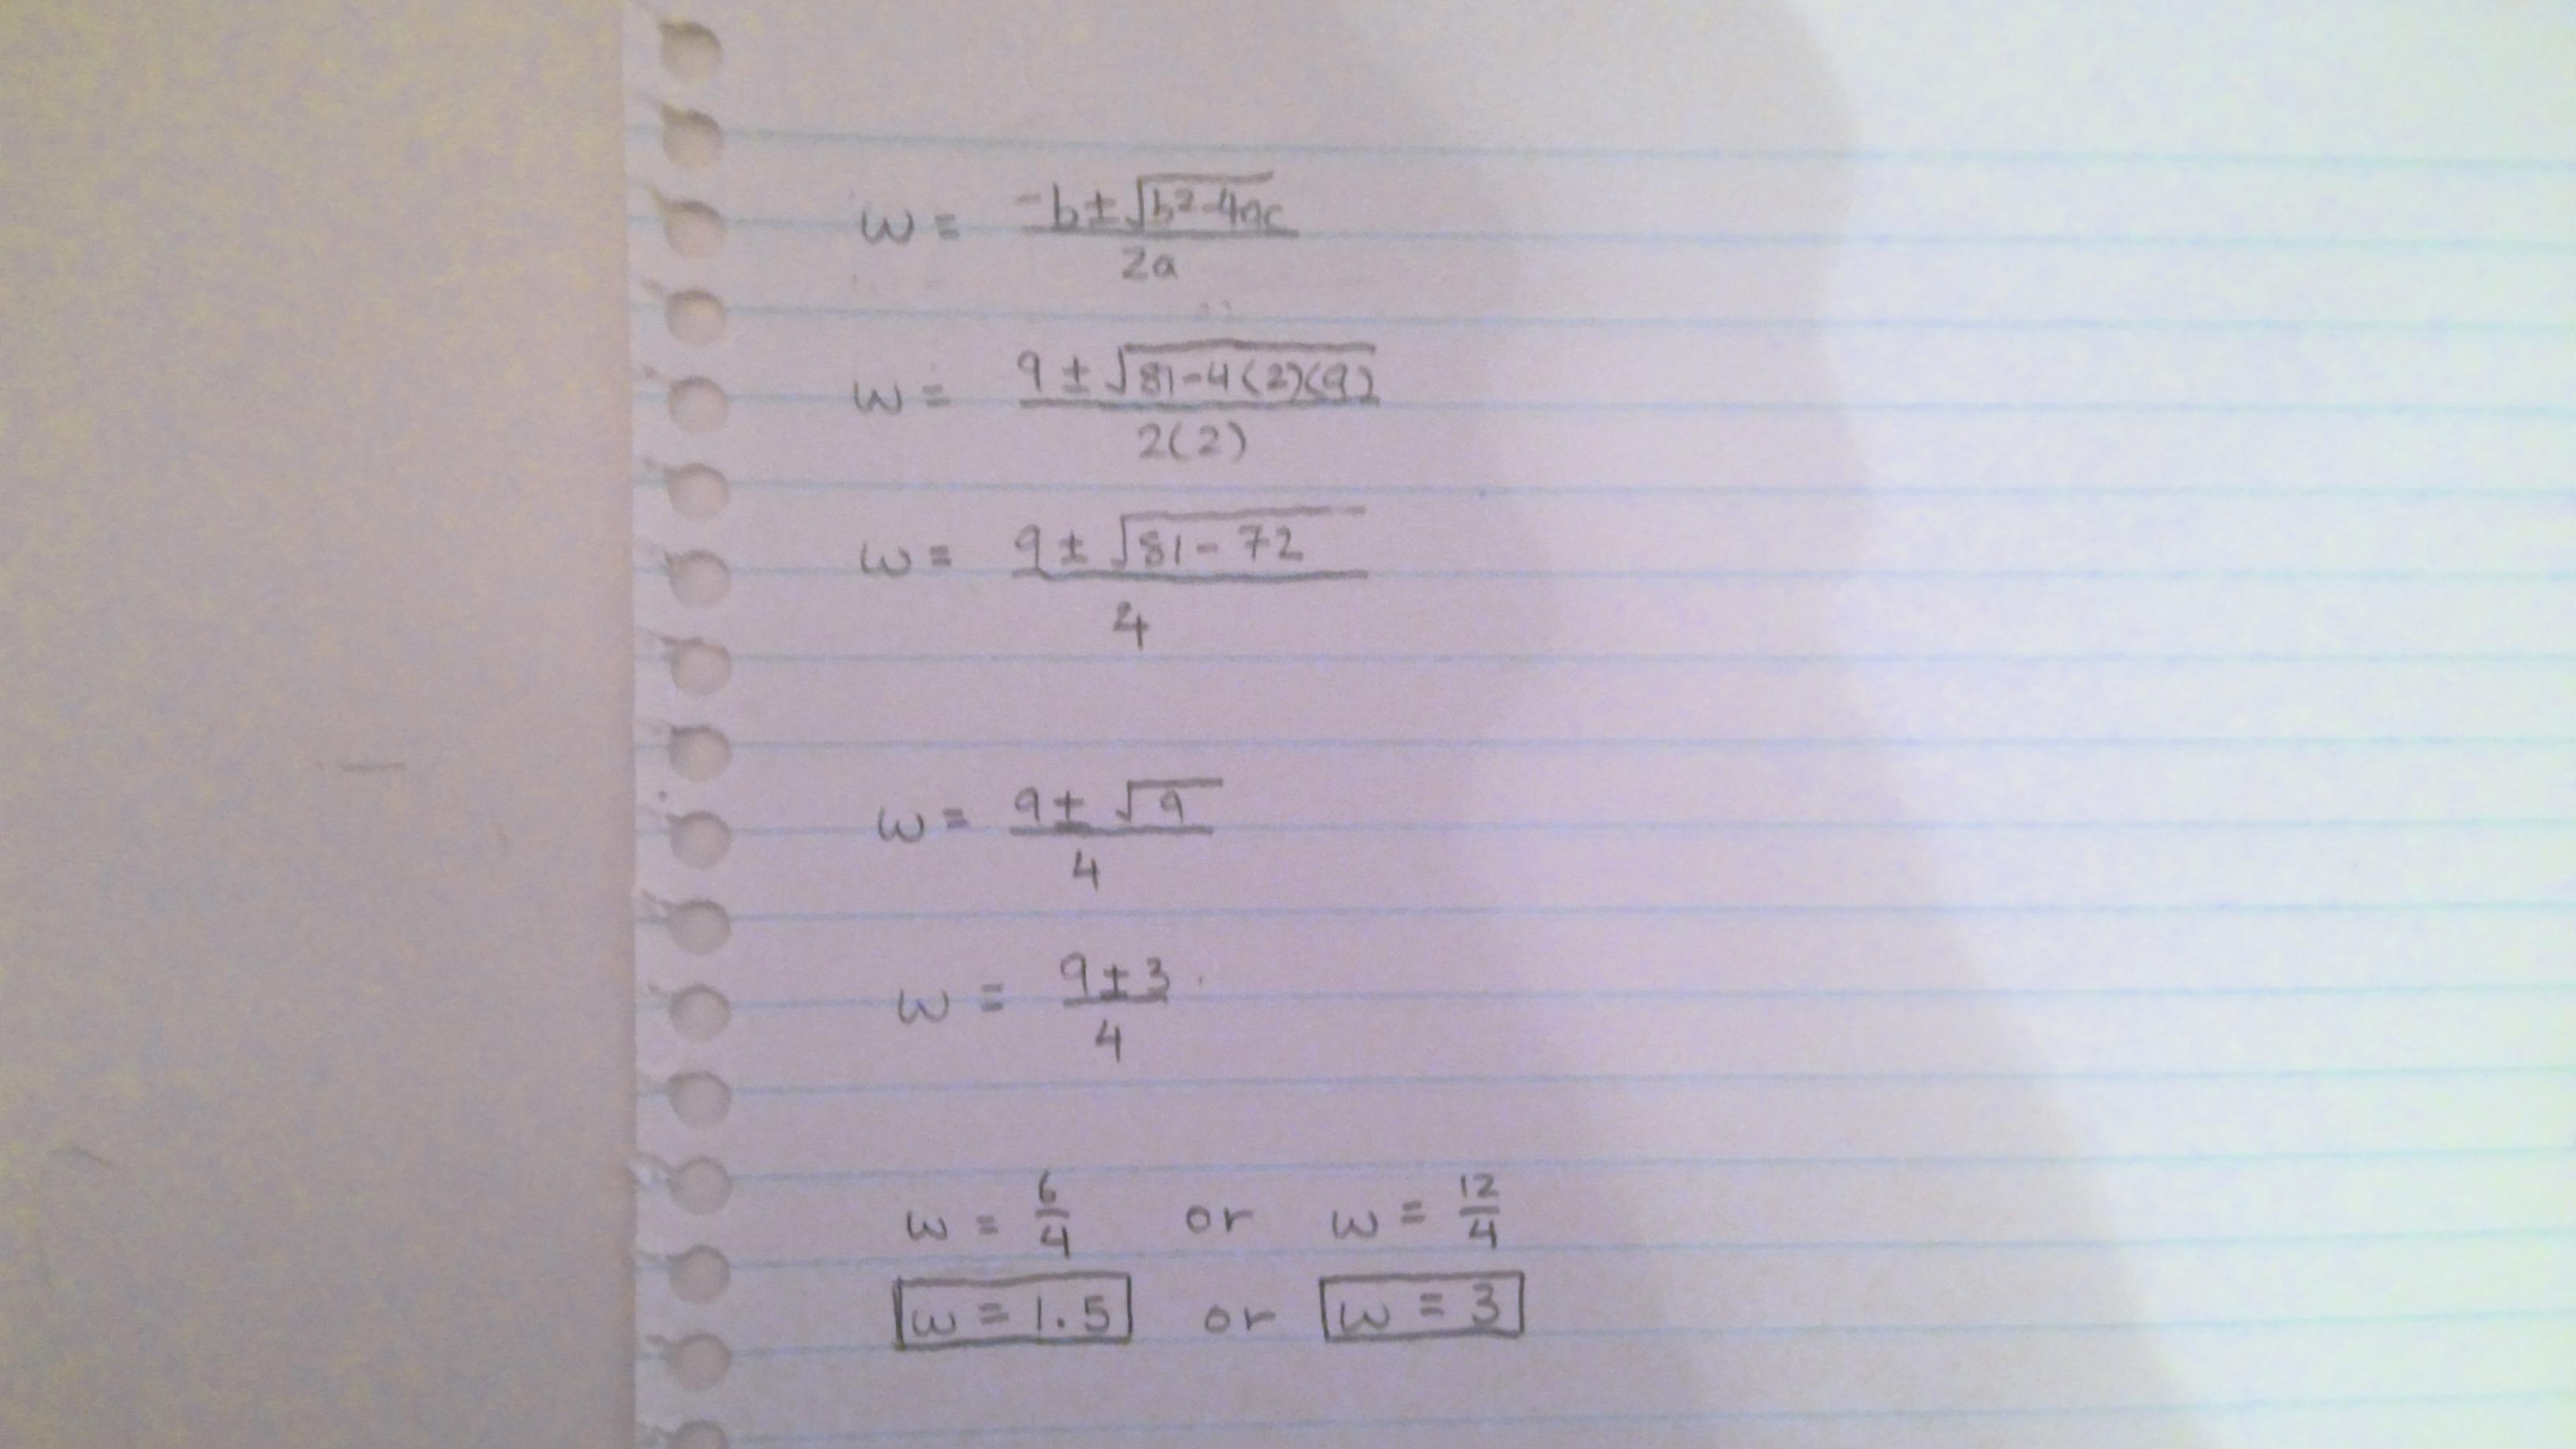 w = -b±√b²-4ac / 2a
w = 9 ± √81-4(2)(9) / 2(2)
w = 9 ± √81-72 / 4
w = 9 ± √9 / 4
w = 9±3 / 4
w = 6/4 or w = 12/4
w = 1.5 or w = 3